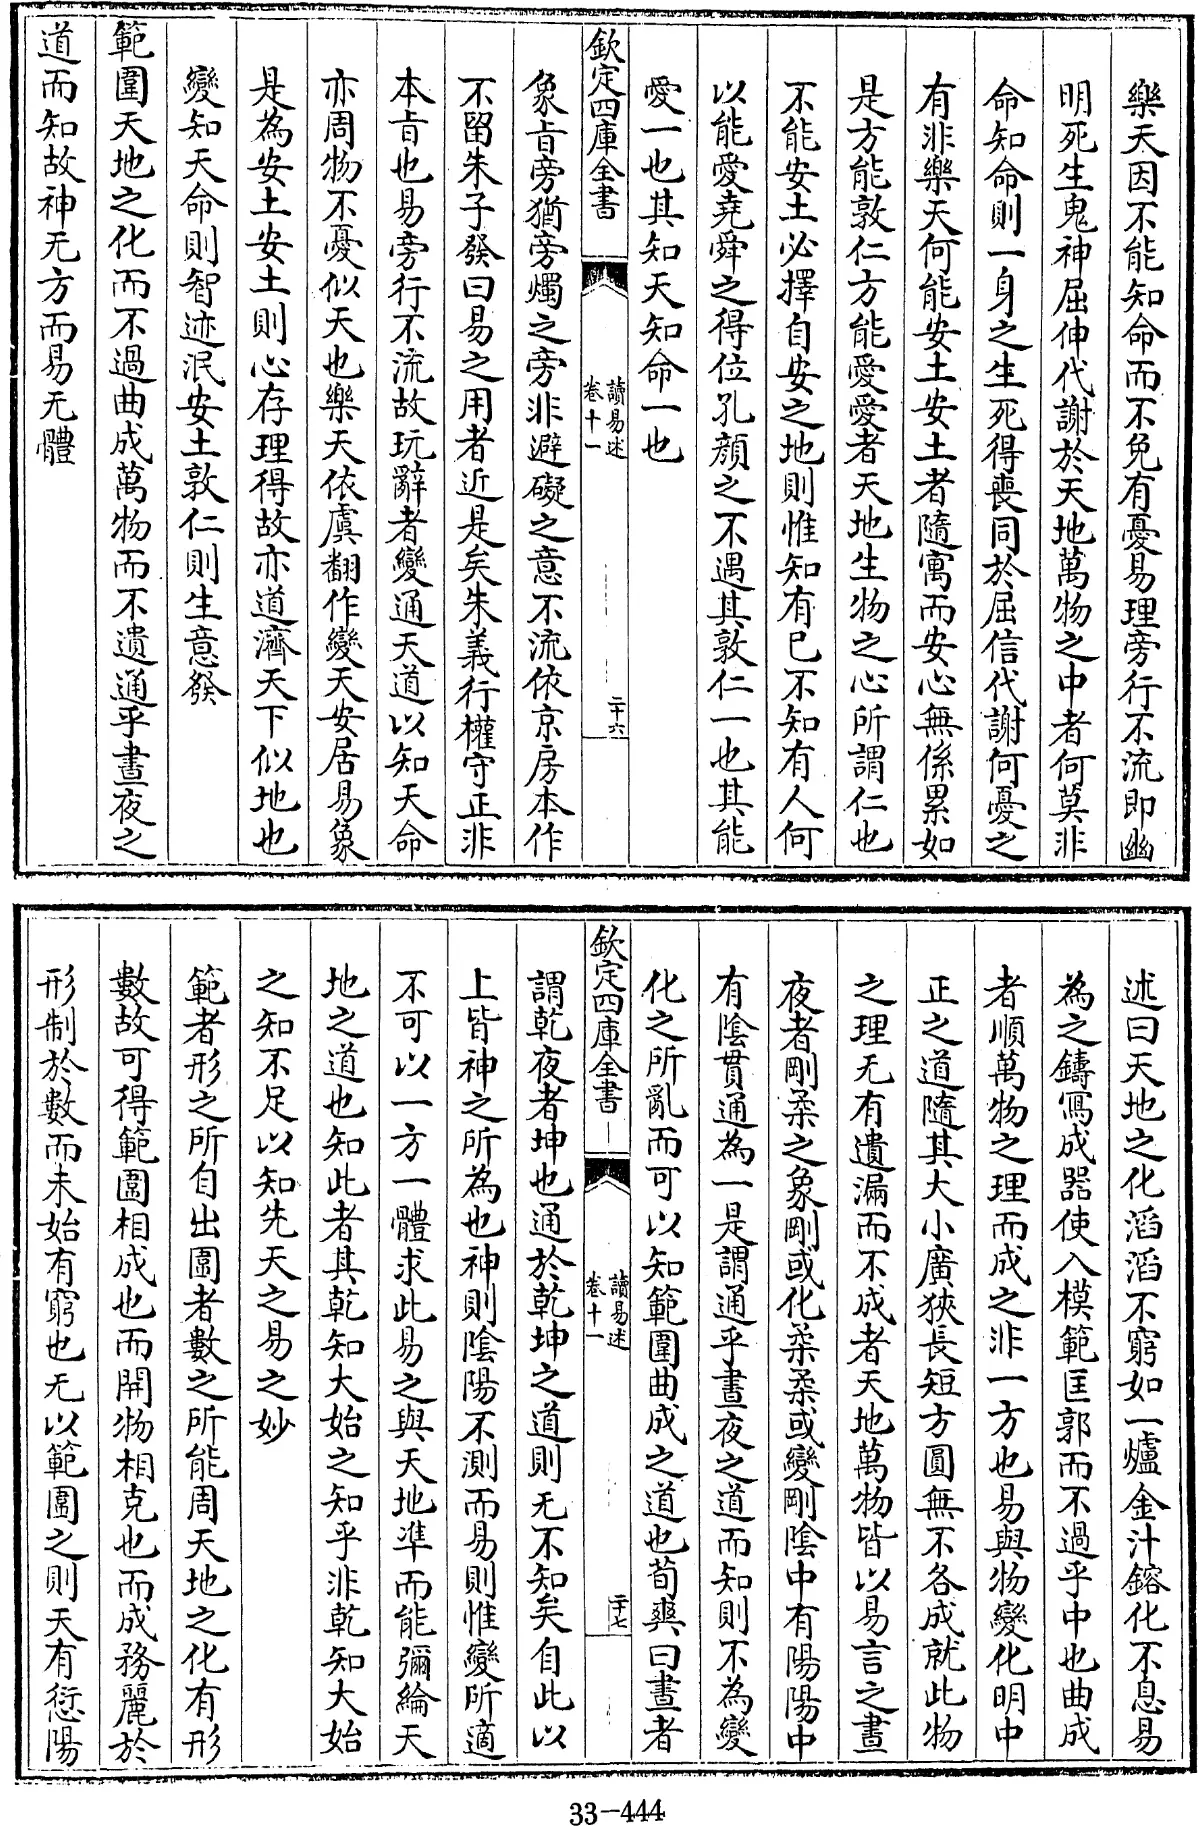 樂天因不能知命而不免有憂易理旁行不流即幽
明死生鬼神屈伸代謝於天地萬物之中者何莫非
命知命則一身之生死得喪同於屈信代謝何憂之
有非樂天何能安土安土者隨寓而安心無係累如
是方能敦仁方能愛愛者天地生物之心所謂仁也
不能安土必擇自安之地則惟知有已不知有人何
以能愛堯舜之得位孔顔之不遇其敦仁一也其能
愛一也其知天知命一也
欽定四庫全書
讀易述
卷十一
二十六
象旨旁猶旁燭之旁非避礙之意不流依京房本作
不留朱子發曰易之用者近是矣朱義行權守正非
本旨也易旁行不流故玩辭者變通天道以知天命
亦周物不憂似天也樂天依虞翻作變天安居易象
是為安土安土則心存理得故亦道濟天下似地也
變知天命則智迹泯安土敦仁則生意發
範圍天地之化而不過曲成萬物而不遺通乎晝夜之
道而知故神无方而易无體
述曰天地之化滔滔不窮如一爐金汁鎔化不息易
為之鑄寫成器使入模範匡郭而不過乎中也曲成
者順萬物之理而成之非一方也易與物變化明中
正之道隨其大小廣狹長短方圓無不各成就此物
之理无有遺漏而不成者天地萬物皆以易言之晝
夜者剛柔之象剛或化柔柔或變剛陰中有陽陽中
有陰貫通為一是謂通乎晝夜之道而知則不為變
化之所亂而可以知範圍曲成之道也荀爽曰晝者
欽定四庫全書
讀易述
卷十一
二十七
謂乾夜者坤也通於乾坤之道則无不知矣自此以
上皆神之所為也神則陰陽不測而易則惟變所適
不可以一方一體求此易之與天地準而能彌綸天
地之道也知此者其乾知大始之知乎非乾知大始
之知不足以知先天之易之妙
範者形之所自出圍者數之所能周天地之化有形
數故可得範圍相成也而開物相克也而成務麗於
形制於數而未始有窮也无以範圍之則天有愆陽
33-444